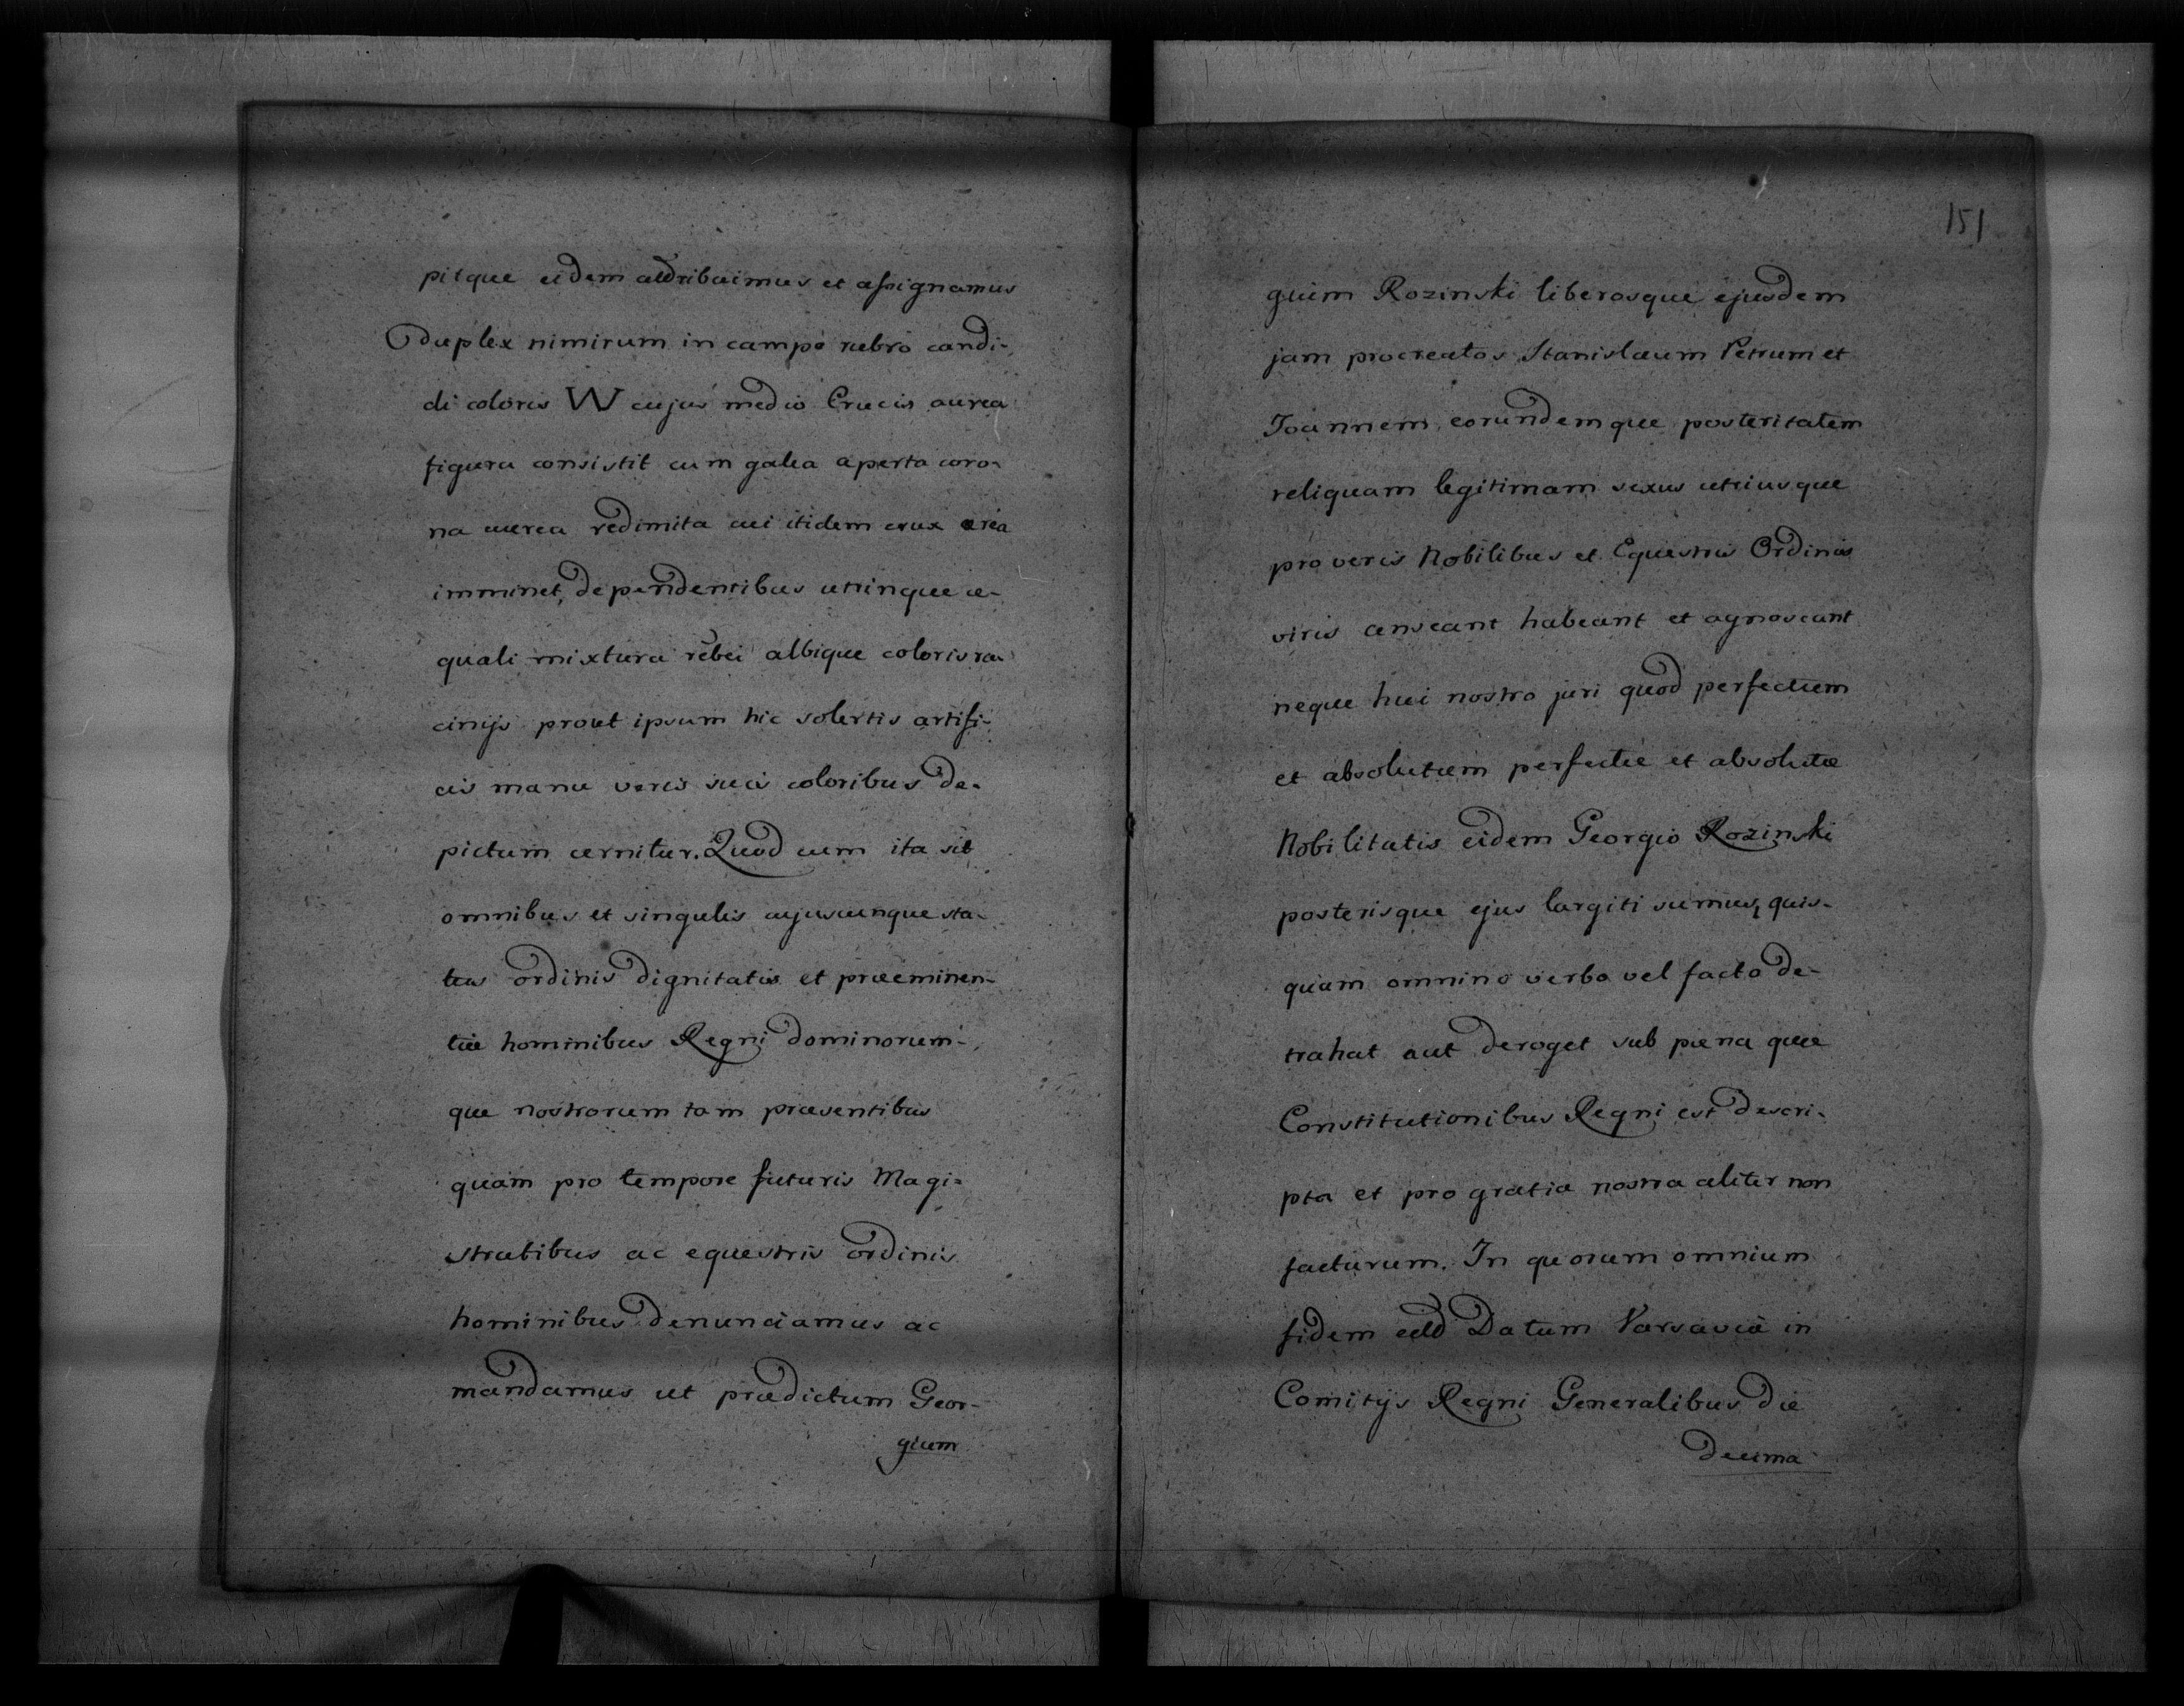 pitque eidem attribuimus et assignamus
Duplex nimirum in campo rubro candi-
di coloris W cujus medio Crucis aurea
figura consistit cum galea aperta coro-
na aurea redimita cui itidem crux area
imminet, dependentibus utrinque æ-
quali mixtura rubei albique coloris la-
cinijs prout ipsum hic solertis artifi-
cis manu veris suis coloribus de-
pictum cernitur. Quod cum ita sit
omnibus et singulis cujuscunque sta-
tus ordinis dignitatis et præeminen-
tiæ hominibus Regni dominorum-
que nostrorum tam præsentibus
quam pro tempore futuris Magi-
stratibus ac equestris ordinis
hominibus denunciamus ac
mandamus ut prædictum Geor-
gium
151
gium Rozinski liberosque ejusdem
jam procreatos Stanislaum Petrum et
Joannem eorundemque posteritatem
reliquam legitimam sexus utriusque
pro veris Nobilibus et Equestris Ordinis
viris censeant habeant et agnoscant
neque huic nostro juri quod perfectum
et absolutum perfectæ et absolutæ
Nobilitatis eidem Georgio Rozinski
posterisque ejus largiti sumus, quis-
quam omnino verbo vel facto de-
trahat aut deroget sub pæna quæ
Constitutionibus Regni est descri-
pta et pro gratia nostra aliter non
facturum. In quorum omnium
fidem Datum Varsaviæ in
Comitijs Regni Generalibus die
decima